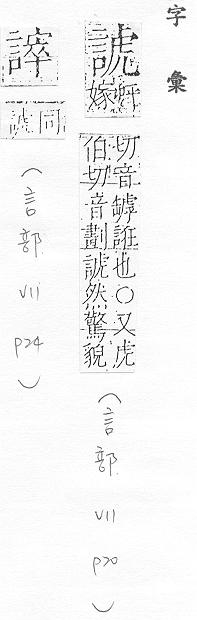 字彙
諕
嫁
切音罅誑也○又虎
伯切音劃諕然驚貌
(言部 VII P20)
同
諕
(言部 VII P24)